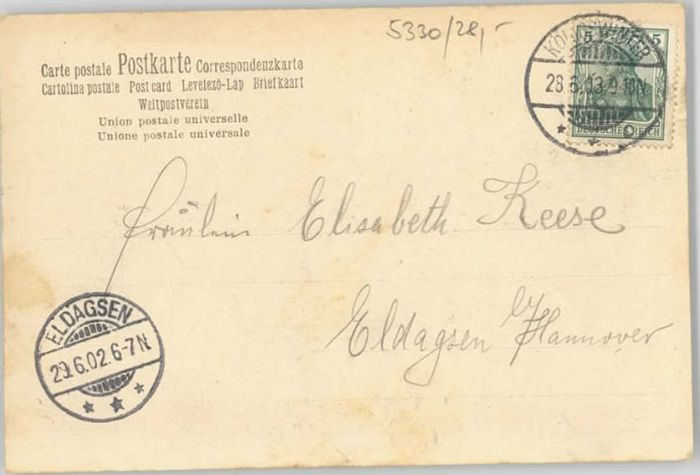 5330/28,-
Carte postale Postkarte Correspondenzkarte
Cartolina postale Post card Levelező-Lap Briefkaart
Weltpostverein
Union postale universelle
Unione postale universale
KÖNIGSWINTER
28.6.03.9-10N
5 5
DEUTSCHES REICH
Fräulein Elisabeth Keese
Eldagsen b/Hannover
ELDAGSEN
29.6.02.6-7N